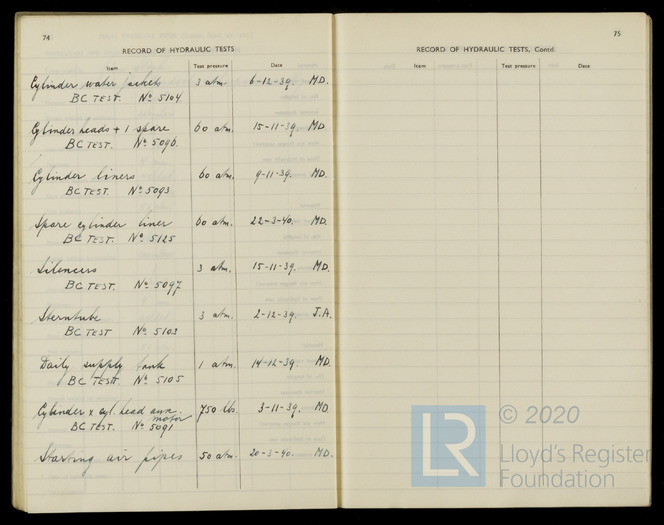 74
RECORD OF HYDRAULIC TESTS
Item Test pressure Date
Cylinder water jackets 3 atm. 6-12-39. MD.
BC TEST. Nº 5104
Cylinder heads + 1 spare 60 atm. 15-11-39. MD.
BC TEST. Nº 5096.
Cylinder liners 60 atm. 9-11-39. MD.
BC TEST. Nº 5093
Spare cylinder liner 60 atm. 22-3-40. MD.
BC TEST. Nº 5125
Silencers 3 atm. 15-11-39. MD.
BC TEST. Nº 5097
Sterntube 3 atm. 2-12-39. J.A.
BC TEST Nº 5103
Daily supply tank 1 atm. 14-12-39. MD.
BC TEST. Nº 5105
Cylinder x cyl. head aux. motor 750 lbs. 3-11-39. MD.
BC TEST. Nº 5091
Starting air pipes 50 atm. 20-3-40. MD.
75
RECORD OF HYDRAULIC TESTS, Contd.
Item Test pressure Date
LR
© 2020
Lloyd's Register
Foundation